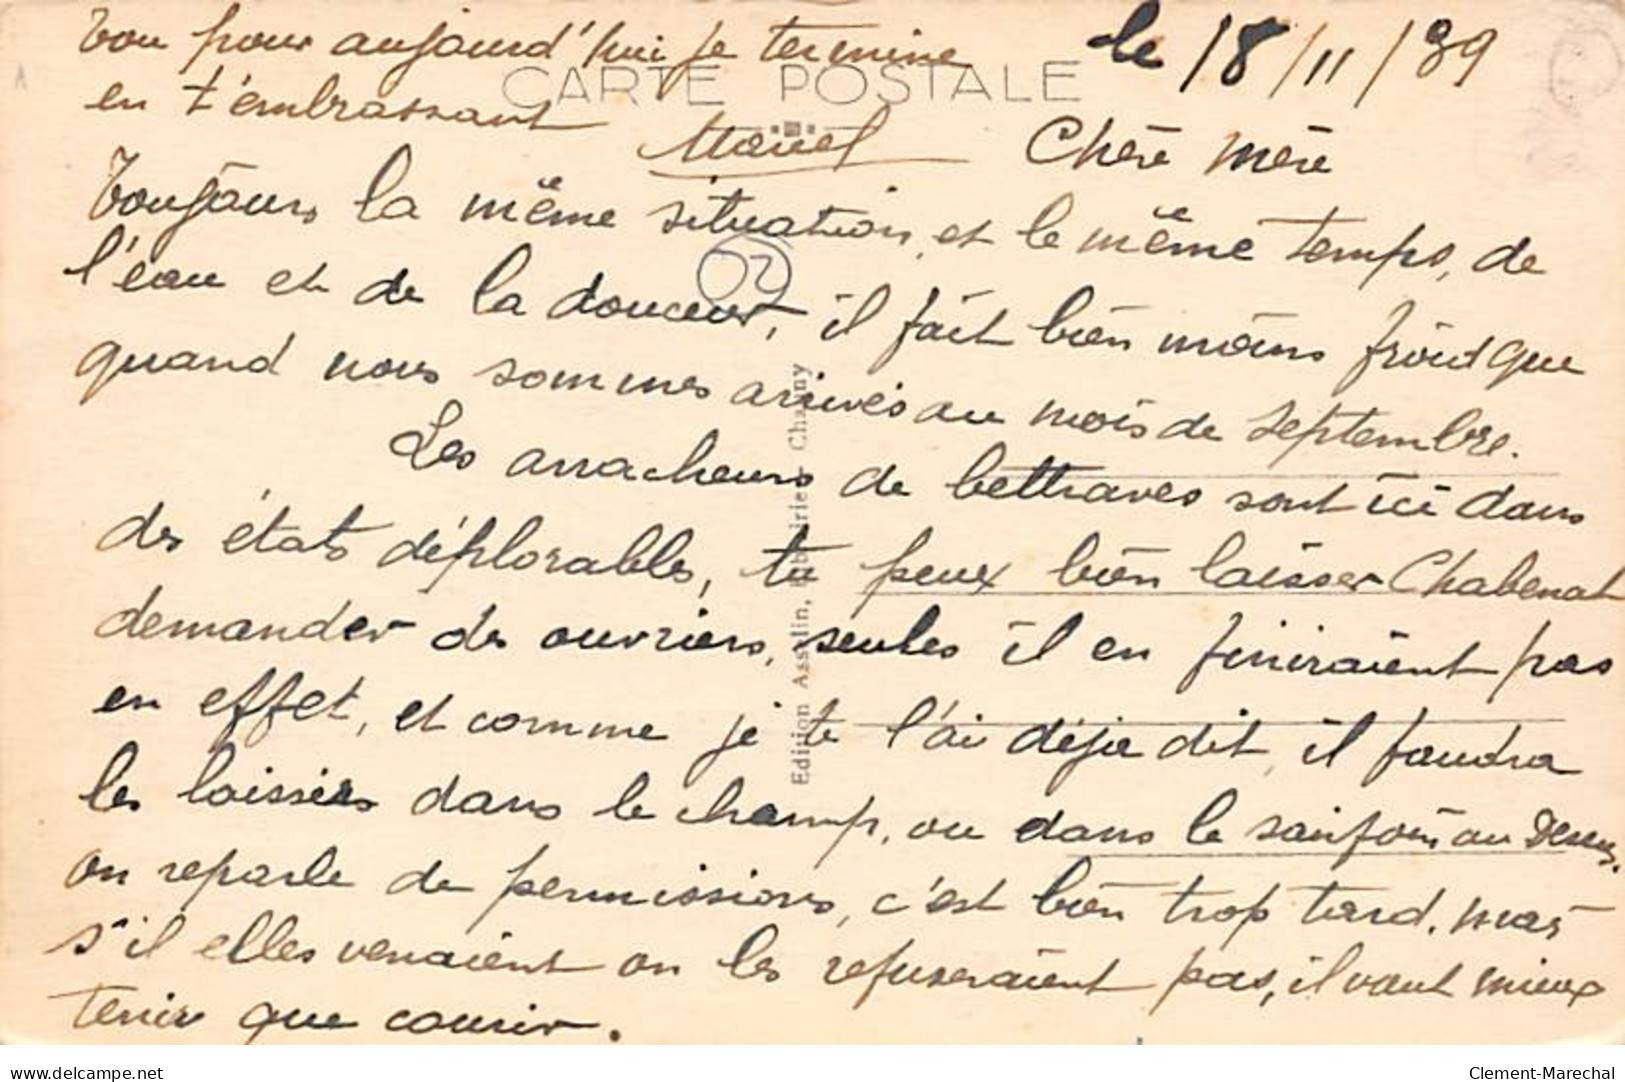 le 18/11/39
Chère mère
Toujours la même situation, et le même temps, de
l'eau et de la douceur, il fait bien moins froid que
quand nous sommes arrivés au mois de septembre.
Les arracheurs de bettraves sont ici dans
des états déplorables, tu peux bien laisser Chabenat
demander des ouvriers, seules il en finiraient pas
en effet, et comme je te l'ai déjà dit, il faudra
les laissées dans le champ, ou dans le sainfoin au Dessus.
On reparle de permissions, c'est bien trop tard. mais
s'il elles venaient on les refuseraient pas, il vaut mieux
tenir que courir.
Tou pour aujourd'hui je termine
en t'embrassant
CARTE POSTALE
02
Edition Asselin, Librairie, Chauny
delcampe.net
Clement-Marechal